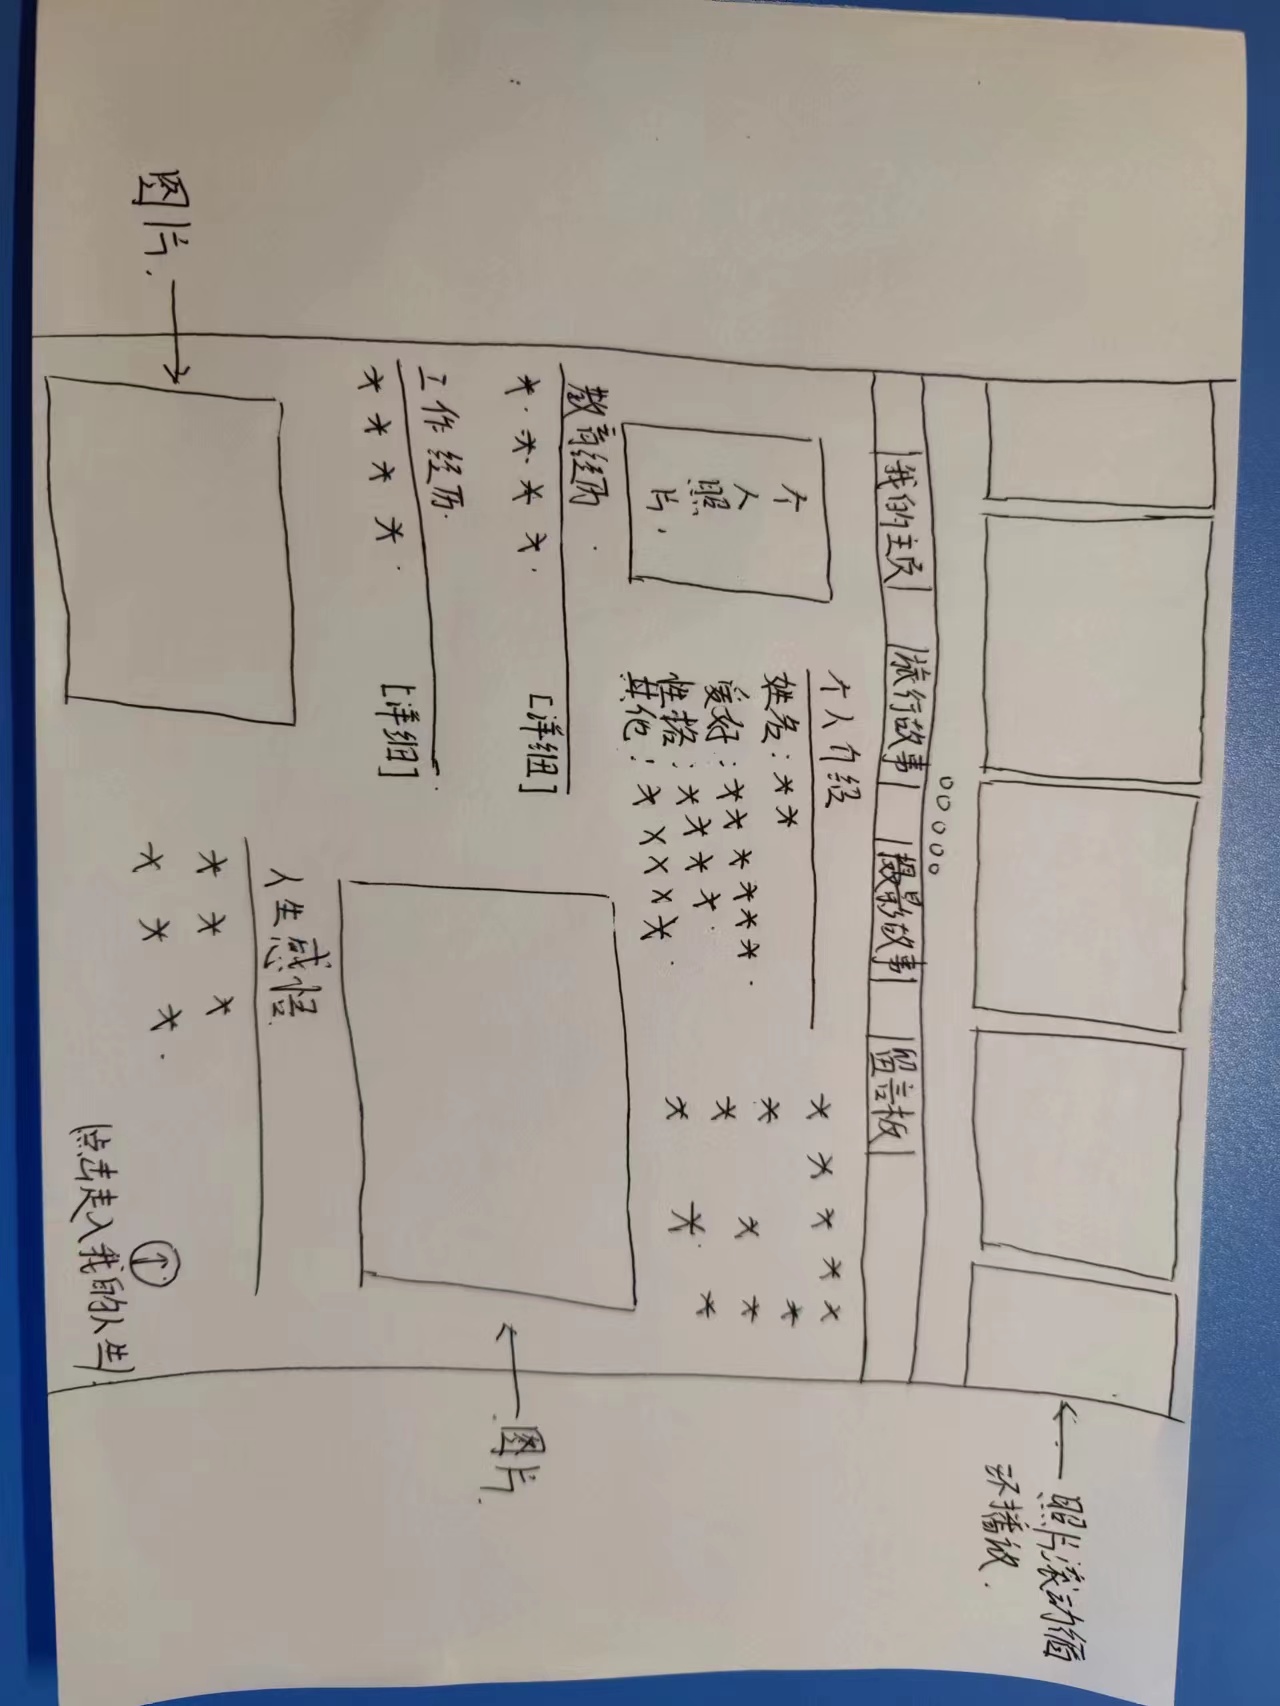 照片滚动循
环播放.
我的主页
旅行故事
摄影故事
留言板
个人照片.
个人介绍
姓名: **
爱好: *******.
性格: *****.
其他: *×××*.
* * * * *
* *
* * *
* * *
教育经历.
*. *. * *.
[详细]
工作经历.
* * * *.
[详细]
图片.
图片.
人生感悟.
* * *
* * *.
↑
点击走入我的人生